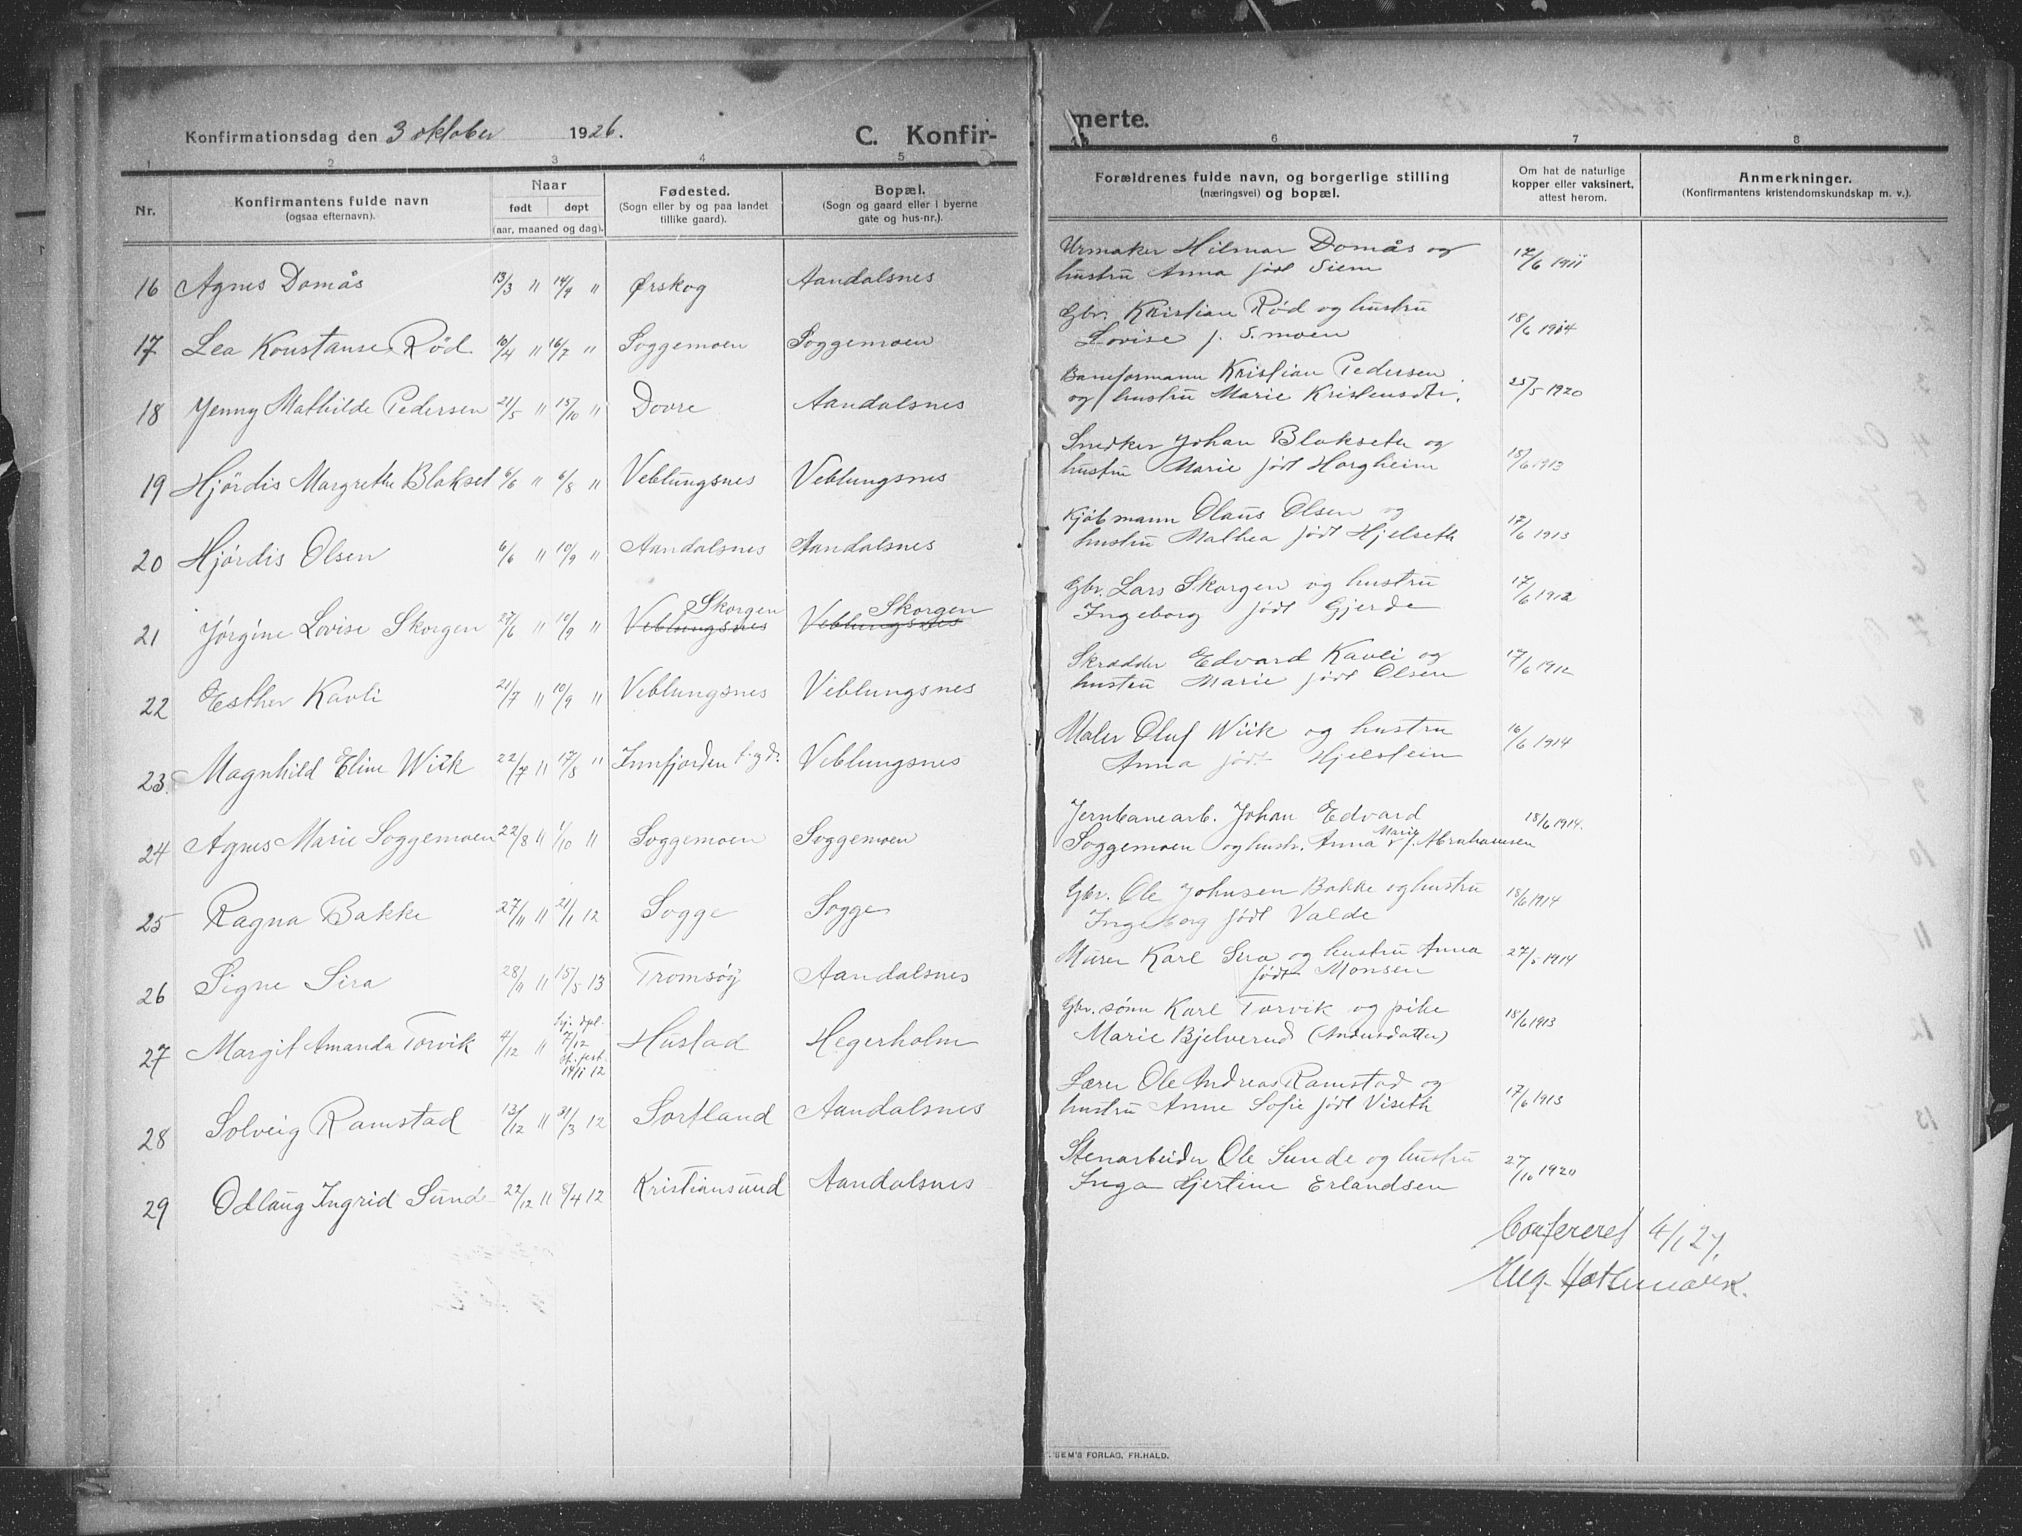 Konfirmationsdag den 3 oktober 1926.
C. Konfir-
merte.
1 2 3 4 5
6 7 8
Nr.
Konfirmantens fulde navn
(ogsaa efternavn).
Naar
født døpt
(aar, maaned og dag).
Fødested.
(Sogn eller by og paa landet
tillike gaard).
Bopæl.
(Sogn og gaard eller i byerne
gate og hus-nr.).
Forældrenes fulde navn, og borgerlige stilling
(næringsvei) og bopæl.
Om hat de naturlige
kopper eller vaksinert,
attest herom.
Anmerkninger.
(Konfirmantens kristendomskundskap m. v.).
16 Agnes Domås 13/3 " 14/4 " Ørskog Aandalsnes
Urmaker Hilmar Domås og
hustru Anna født Siem
17/6 1911
17 Lea Konstanse Rød 10/4 " 16/7 " Soggemoen Soggemoen
Gbr. Kristian Rød og hustru
Lovise f. S.moen
18/6 1914
18 Jenny Mathilde Pedersen 21/5 " 15/10 " Dovre Aandalsnes
Baneformann Kristian Pedersen
og hustru Marie Kristensdtr.
25/5 1920
19 Hjørdis Margrethe Blakset 6/6 " 6/8 " Veblungsnes Veblungsnes
Snedker Johan Blakseter og
hustru Marie født Horgheim
18/6 1913
20 Hjørdis Olsen 6/6 " 10/9 " Aandalsnes Aandalsnes
Kjøbmann Olaus Olsen og
hustru Mathea født Hjelseth
17/6 1913
Skorgen Skorgen
21 Jørgine Lovise Skorgen 27/6 " 10/9 " Veblungsnes Veblungsnes
Gbr. Lars Skorgen og hustru
Ingeborg født Gjerde
17/6 1912
22 Esther Kavli 21/7 " 10/9 " Veblungsnes Veblungsnes
Skrædder Edvard Kavli og
hustru Marie født Olsen
17/6 1912
23. Magnhild Eline Wiik 22/7 " 17/8 " Innfjorden Veblungsnes
Maler Oluf Wiik og hustru
Anna født Hjelstein
16/6 1914
24 Agnes Marie Soggemoen 22/8 " 1/10 " Soggemoen Soggemoen
Jernbanearb. Johan Edvard
Soggemoen og hustr. Anna Marie f. Abrahamsen
18/6 1914.
25 Ragna Bakke 27/11 " 21/1 12 Sogge Sogge
Gbr. Ole Johnsen Bakke og hustru
Ingeborg født Valde
18/6 1914
26 Signe Sira 28/11 " 15/5 13 Tromsøy Aandalsnes
Murer Karl Sira og hustru Anna
født Monsen
27/5 1914
27 Margit Amanda Torvik 4/12 " hj. dpt. 7/12 st. fest. 14/1 12 Hustad Hegerholm
Gbr. sønn Karl Torvik og pike
Marie Bjelverud (Andersdatter)
18/6 1913
28 Solveig Ramstad 13/12 " 31/3 12 Sortland Aandalsnes
Lærer Ole Andreas Ramstad og
hustru Anne Sofie født Viseth
17/6 1913
29 Odlaug Ingrid Sunde 22/12 " 8/4 12 Kristiansund Aandalsnes
Stenarbeider Ole Sunde og hustru
Inga Hjertine Erlandsen
27/10 1920
Confereret 4/1 27.
SEM'S FORLAG, FR.HALD.